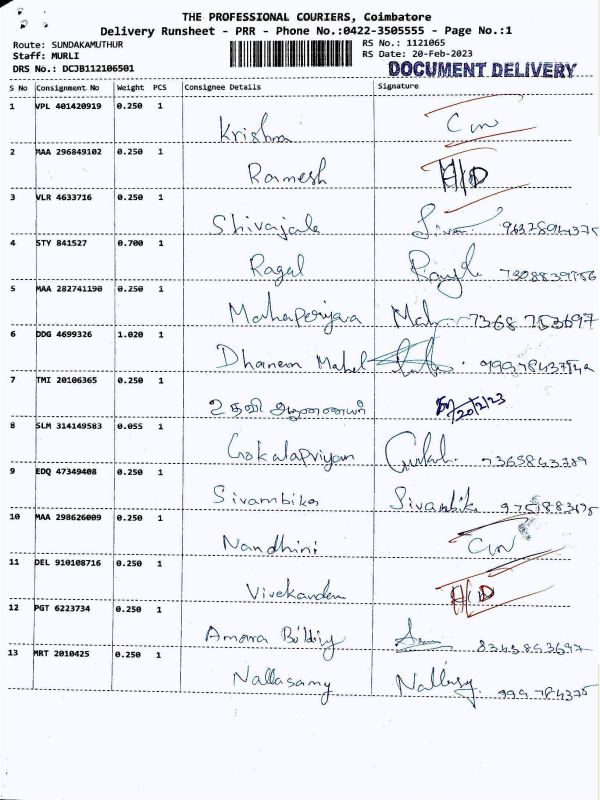 THE PROFESSIONAL COURIERS, Coimbatore
Delivery Runsheet - PRR - Phone No.:0422-3505555 - Page No.:1
Route: SUNDAKAMUTHUR RS No.: 1121065
Staff: MURLI RS Date: 20-Feb-2023
DRS No.: DCJB112106501 DOCUMENT DELIVERY
S No Consignment No Weight PCS Consignee Details Signature
1 VPL 401420919 0.250 1
Krishna
2 MAA 296849102 0.250 1
Ramesh H/D
3 VLR 4633716 0.250 1
Shivajale
4 STY 841527 0.700 1
Ragal
5 MAA 282741190 0.250 1
Mahaperiyava 7368753697
6 DDG 4699326 1.020 1
Dhanem Mahel
7 TMI 20106365 0.250 1
உதவி ஆணையர் 20/2/23
8 SLM 314149583 0.055 1
Gokalapriyan
9 EDQ 47349408 0.250 1
Sivambika Sivambik
10 MAA 298626009 0.250 1
Nandhini
11 DEL 910108716 0.250 1
Vivekanden H/D
12 PGT 6223734 0.250 1
Amowa
13 MRT 2010425 0.250 1
Nallasamy